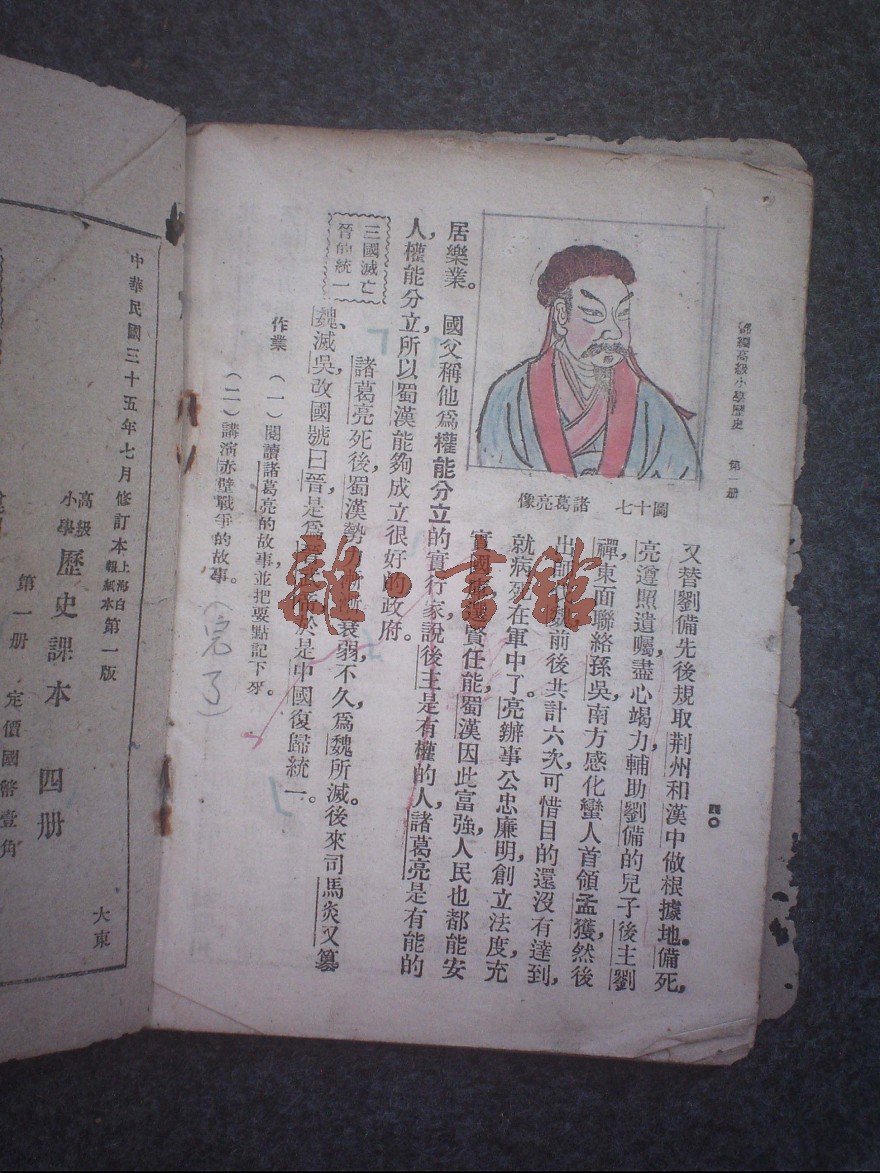 高級小學歷史 第一冊
四〇
圖十七 諸葛亮像
又替劉備先後規取荆州和漢中做根據地。備死,
亮遵照遺囑,盡心竭力,輔助劉備的兒子後主劉
禪,東面聯絡孫吳,南方感化蠻人首領孟獲,然後
出師 魏前後共計六次,可惜目的還沒有達到,
就病死在軍中了。亮辦事公忠廉明,創立法度,充
實國 選賢任能,蜀漢因此富強,人民也都能安
居樂業。 國父稱他爲權能分立的實行家,說後主是有權的人,諸葛亮是有能的
人,權能分立,所以蜀漢能夠成立很好的政府。
三國滅亡
晉的統一
諸葛亮死後,蜀漢勢 衰弱,不久,爲魏所滅。後來司馬炎又篡
魏、滅吳,改國號曰晉,是爲 於是中國復歸統一。
作業 (一)閱讀諸葛亮的故事,並把要點記下來。
(二)講演赤壁戰爭的故事。
(完了)
雜·書館
中華民國三十五年七月修訂本上海白報紙本第一版
高級小學 歷史課本 四册
第一册 定價國幣壹角
大東